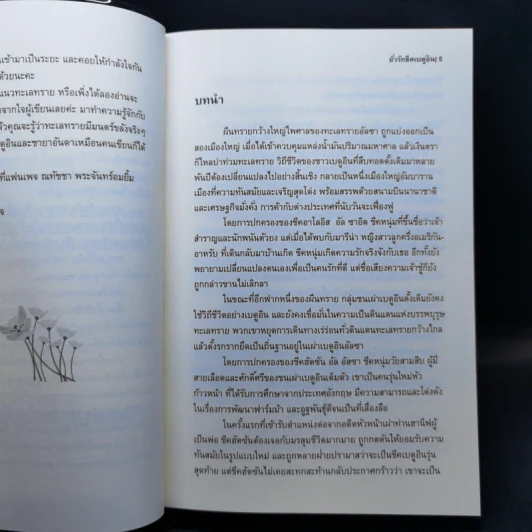 เข้ามาเป็นระยะ และคอยให้กำลังใจกัน
ด้วยนะคะ
แนวทะเลทราย หรือเพิ่งได้ลองอ่านจะ
จากใจผู้เขียนเลยค่ะ มาทำความรู้จักกับ
แล้วคุณจะรู้ว่าทะเลทรายมีมนตร์ขลังจริงๆ
ดูอินและชายาอันดาเหมือนคนเขียนก็ได้
ที่แฟนเพจ ณทัชชา พระจันทร์อมยิ้ม
ยั่วรักชีคเบดูอิน| 5
บทนำ
ผืนทรายกว้างใหญ่ไพศาลของทะเลทรายอัลซา ถูกแบ่งออกเป็น
สองเมืองใหญ่ เมื่อได้เข้าควบคุมแหล่งน้ำมันปริมาณมหาศาล แล้วเงินตรา
ก็ไหลบ่าท่วมทะเลทราย วิถีชีวิตของชาวเบดูอินที่สืบทอดดั้งเดิมมาหลาย
พันปีต้องเปลี่ยนแปลงไปอย่างสิ้นเชิง กลายเป็นหนึ่งเมืองใหญ่อับาราน
เมืองที่ความทันสมัยและเจริญสุดโต่ง พร้อมสรรพด้วยสนามบินนานาชาติ
และเศรษฐกิจมั่งคั่ง การค้ากับต่างประเทศที่นับวันจะเฟื่องฟู
โดยการปกครองของชีคอาโลอิส อัล ซาอิด ชีคหนุ่มที่ขึ้นชื่อว่าเจ้า
สำราญและนักพนันตัวยง แต่เมื่อได้พบกับมารีน่า หญิงสาวลูกครึ่งอเมริกัน-
อาหรับ ที่เดินกลับมาบ้านเกิด ชีคหนุ่มเกิดความรักจริงจังกับเธอ อีกทั้งยัง
พยายามเปลี่ยนแปลงตนเองเพื่อเป็นคนรักที่ดี แต่ชื่อเสียงความเจ้าชู้ก็ยัง
ถูกกล่าวขานไม่เลิกลา
ในขณะที่อีกฟากหนึ่งของผืนทราย กลุ่มชนเผ่าเบดูอินดั้งเดิมยังคง
ใช้วิถีชีวิตอย่างเบดูอิน และยังคงเชื่อมั่นในความเป็นดินแดนแห่งบรรพบุรุษ
ทะเลทราย พวกเขาหยุดการเดินทางเร่ร่อนทั่วดินแดนทะเลทรายกว้างไกล
แล้วตั้งรกรากยึดเป็นถิ่นฐานอยู่ในเผ่าเบดูอินอัลซา
โดยการปกครองของชีคฮัซซัน อัล อัสซา ชีคหนุ่มวัยสามสิบ ผู้มี
สายเลือดและศักดิ์ศรีของชนเผ่าเบดูอินเต็มตัว เขาเป็นคนรุ่นใหม่หัว
ก้าวหน้า ที่ได้รับการศึกษาจากประเทศอังกฤษ มีความสามารถและโด่งดัง
ในเรื่องการพัฒนาฟาร์มม้า และอูฐพันธุ์ดีจนเป็นที่เลื่องลือ
ในครั้งแรกที่เข้ารับตำแหน่งต่อจากอดีตหัวหน้าเผ่าท่านฮานีฟผู้
เป็นพ่อ ชีคฮัซซันต้องเจอกับมรสุมชีวิตมากมาย ถูกกดดันให้ยอมรับความ
ทันสมัยในรูปแบบใหม่ และถูกหลายฝ่ายปรามาสว่าจะเป็นชีคเบดูอินรุ่น
สุดท้าย แต่ชีคฮัซซันไม่เคยสะทกสะท้านกลับประกาศกร้าวว่า เขาจะเป็น